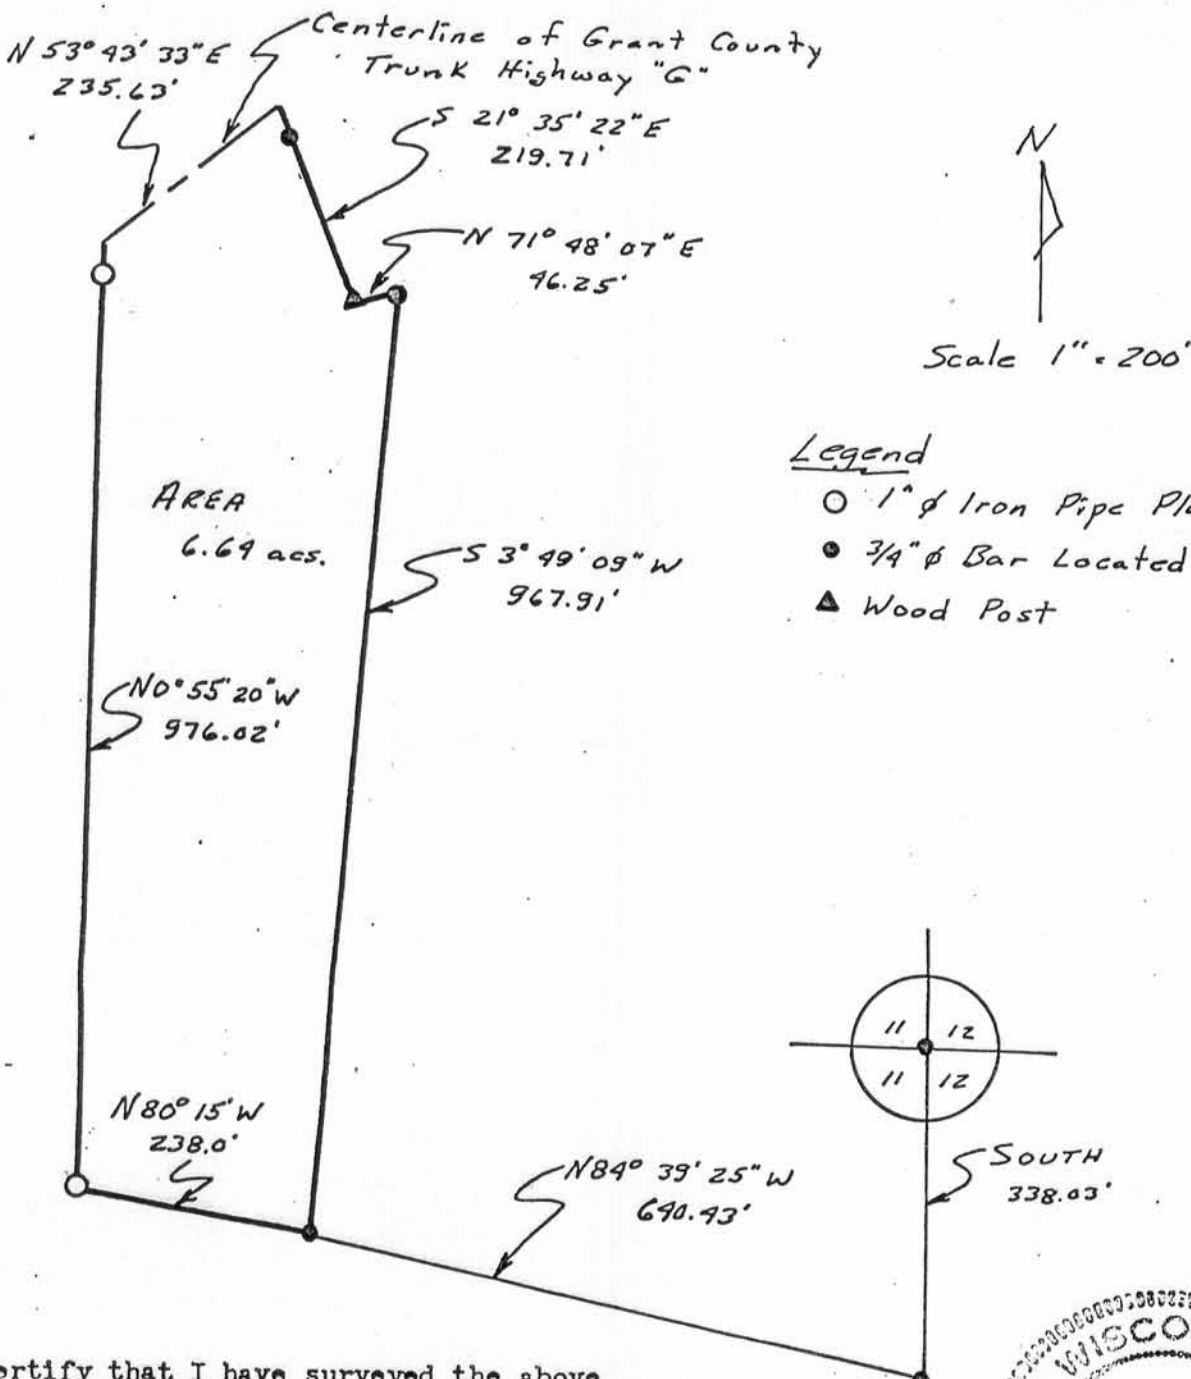 N 53° 43' 33" E
235.63'
Centerline of Grant County
Trunk Highway "G"
S 21° 35' 22" E
219.71'
N 71° 48' 07" E
46.25'
N
Scale 1" = 200'
Legend
1" ø Iron Pipe
3/4" ø Bar Located
Wood Post
AREA
6.64 acs.
S 3° 49' 09" W
967.91'
N 0° 55' 20" W
976.02'
11 12
11 12
N 80° 15' W
238.0'
N 84° 39' 25" W
640.43'
SOUTH
338.03'
WISCO
that I have surveyed the above